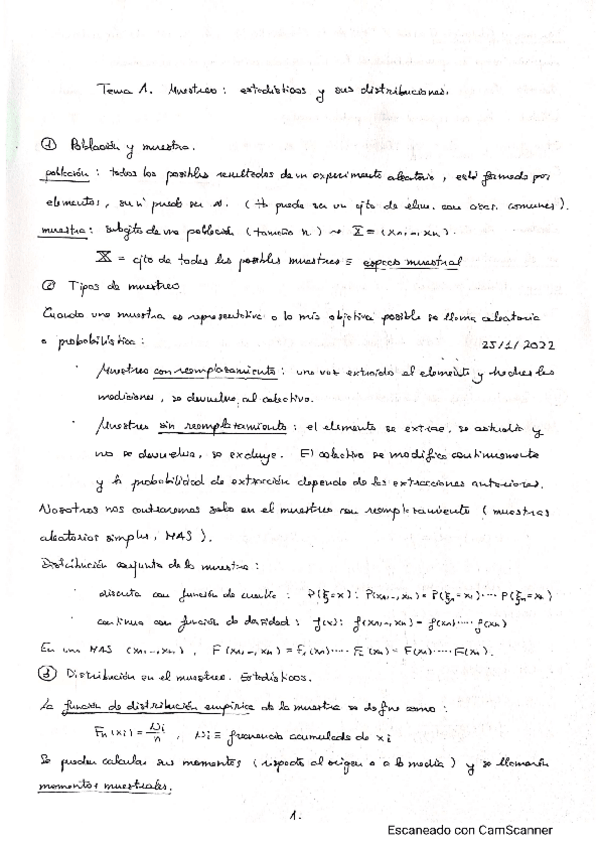 Tema 1. Muestreo: estadísticos y sus distribuciones.
① Población y muestra.
población: todos los posibles resultados de un experimento aleatorio, está formado por
elementos, su nº puede ser ∞. (Ha puede ser un cjto de elem. con carac. comunes).
muestra: subcjto de una población (tamaño n) ~ X = (x₁, ..., xₙ).
X = cjto de todas las posibles muestras ≡ espacio muestral
② Tipos de muestreo
Cuando una muestra es representativa o lo más objetiva posible se llama aleatoria
o probabilística:
25/1/2022
· Muestreo con reemplazamiento: una vez extraído el elemento y hechas las
mediciones, se devuelve al colectivo.
· Muestreo sin reemplazamiento: el elemento se extrae, se estudia y
no se devuelve, se excluye. El colectivo se modifica continuamente
y la probabilidad de extracción depende de las extracciones anteriores.
Nosotros nos centraremos solo en el muestreo con reemplazamiento (muestras
aleatorias simples, MAS).
Distribución conjunta de la muestra:
· discreta con función de cuantía: P(ξ=x): P(x₁,..,xₙ) = P(ξ₁=x₁)···· P(ξₙ=xₙ)
· continua con función de densidad: f(x): f(x₁,..,xₙ) = f(x₁)···· f(xₙ)
En una MAS (x₁,..,xₙ), F(x₁,..,xₙ) = F₁(x₁)····Fₙ(xₙ) = F(x₁)····F(xₙ).
③ Distribución en el muestreo. Estadísticos.
La función de distribución empírica de la muestra se define como:
Fₙ(xi) = Ni/n , Ni ≡ frecuencia acumulada de xi
Se pueden calcular sus momentos (respecto al origen o a la media) y se llamarán
momentos muestrales.
1.
Escaneado con CamScanner